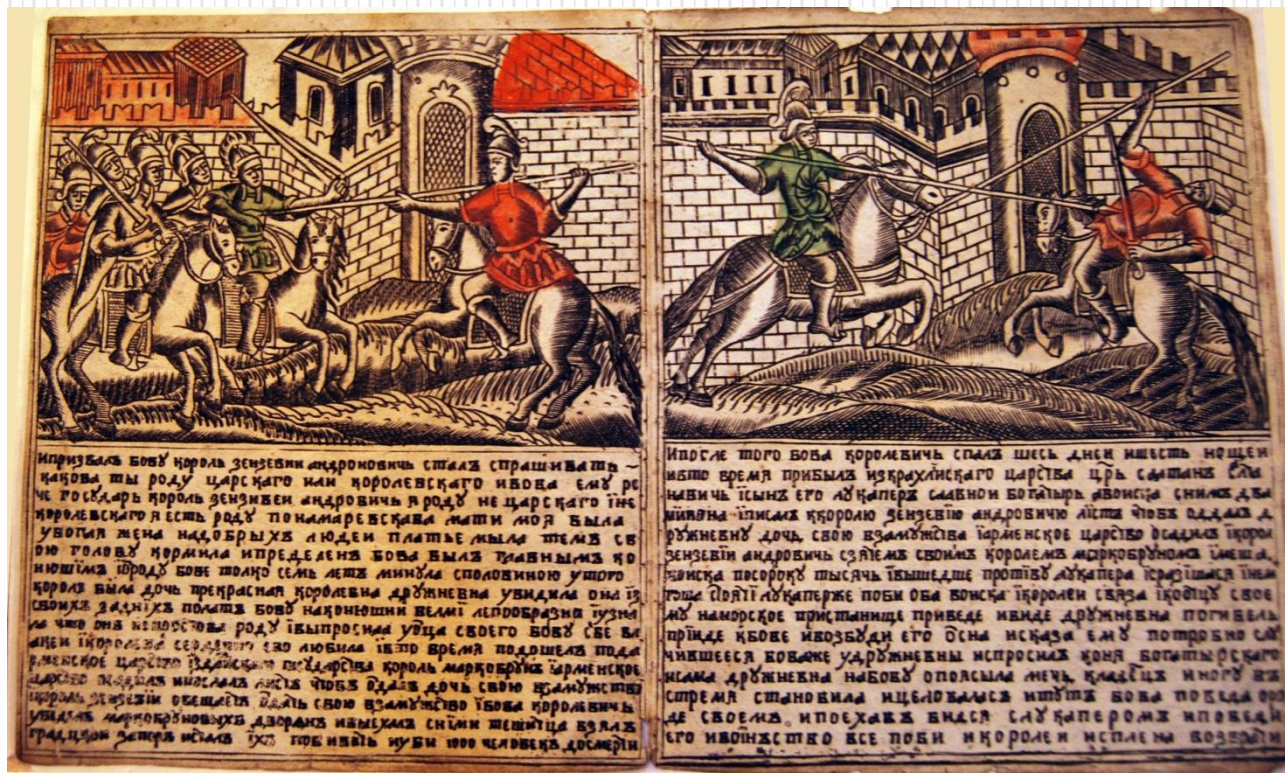 ипризвалъ бовꙋ король зензевии андроновичь сталъ спрашивать ~
какова ты родꙋ царскаго или королевскаго ибова емꙋ ре
че государь король зензивеи андровичь я родꙋ не царскаго їне
королевскаго я есть родꙋ понамаревскава мати моя была
ꙋбогая жена надобрыхъ людеи платье мыла темъ св
ою головꙋ кормила ипределенъ бова былъ главнымъ ко
нюшїмъ їородꙋ бове толко семь летъ минула сполови́ною ꙋтого
короля была дочь прекрасная королевна дрꙋжневна ꙋвидила она їз
своихъ заднїхъ полатъ бовꙋ наконюшни велми лепообразна їꙋзна
ла что онъ родꙋ ївыпросила ꙋоца своего бовꙋ себе
їкоролевна его любила івто время подошелъ пода
рменское царство король маркобрꙋнъ їарменское
царство листъ чтобъ дочь свою взамꙋжство
король зензевїи обещаетъ свою взамꙋжство їбова королевичь
маркобрꙋновыхъ дворянъ ивыехалъ сними взялъ
їхъ побивать иꙋби 1000 человекъ досмерти
Ипосле того бова королевичь спалъ шесь днеи ишесть нощеи
ивто время прибылъ изкрахлїскаго царства црь салтанъ
навичь їсынъ его лꙋкаперъ славнои богатырь авоиска снимъ два
їписалъ ккоролю зензевїю андровичю лїстъ чтобъ оддалъ д
рꙋжневнꙋ дочь свою взамꙋжства їарменское царство осадилъ їкорол
зензевїи андровичь сзятемъ своимъ королемъ маркобрꙋномъ
воиска посорокꙋ тысячь івышедше протївꙋ лꙋкапера
лꙋкаперже поби оба воиска їкоролеи связа їкоѿцꙋ свое
мꙋ наморское пристанище приведе ивиде дрꙋжневна погибель
прїиде кбове ивозбꙋди его ѿсна исказа емꙋ
чившееся боваже ꙋдрꙋжневны испросилъ коня богатырскаго
исама дрꙋжневна набовꙋ опоясыла мечь кладенцъ иногꙋ въ
стремя становила ицеловалася бова
де своемъ. ипоехавъ бився слꙋкаперомъ ипобеди
его ивоинъство все поби икоролеи исплена